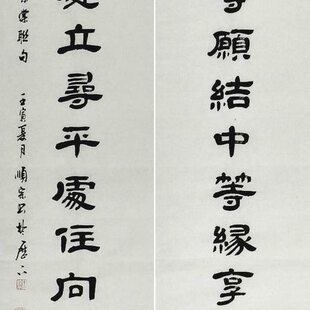 等願結中等緣享
處立尋平處住向
棠聯句 壬寅夏月順書於歷下